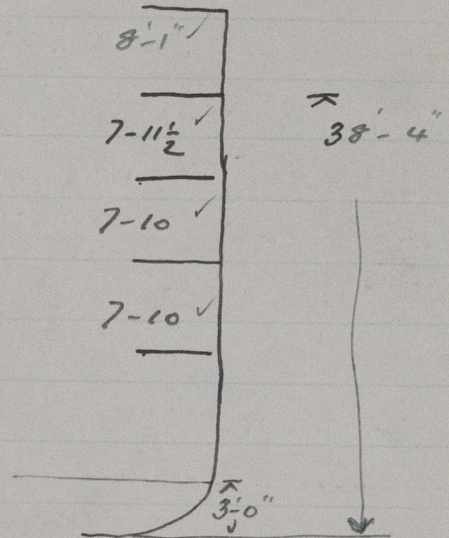 8'-1"
7-11½
38'-4"
7-10
7-10
3'-0"